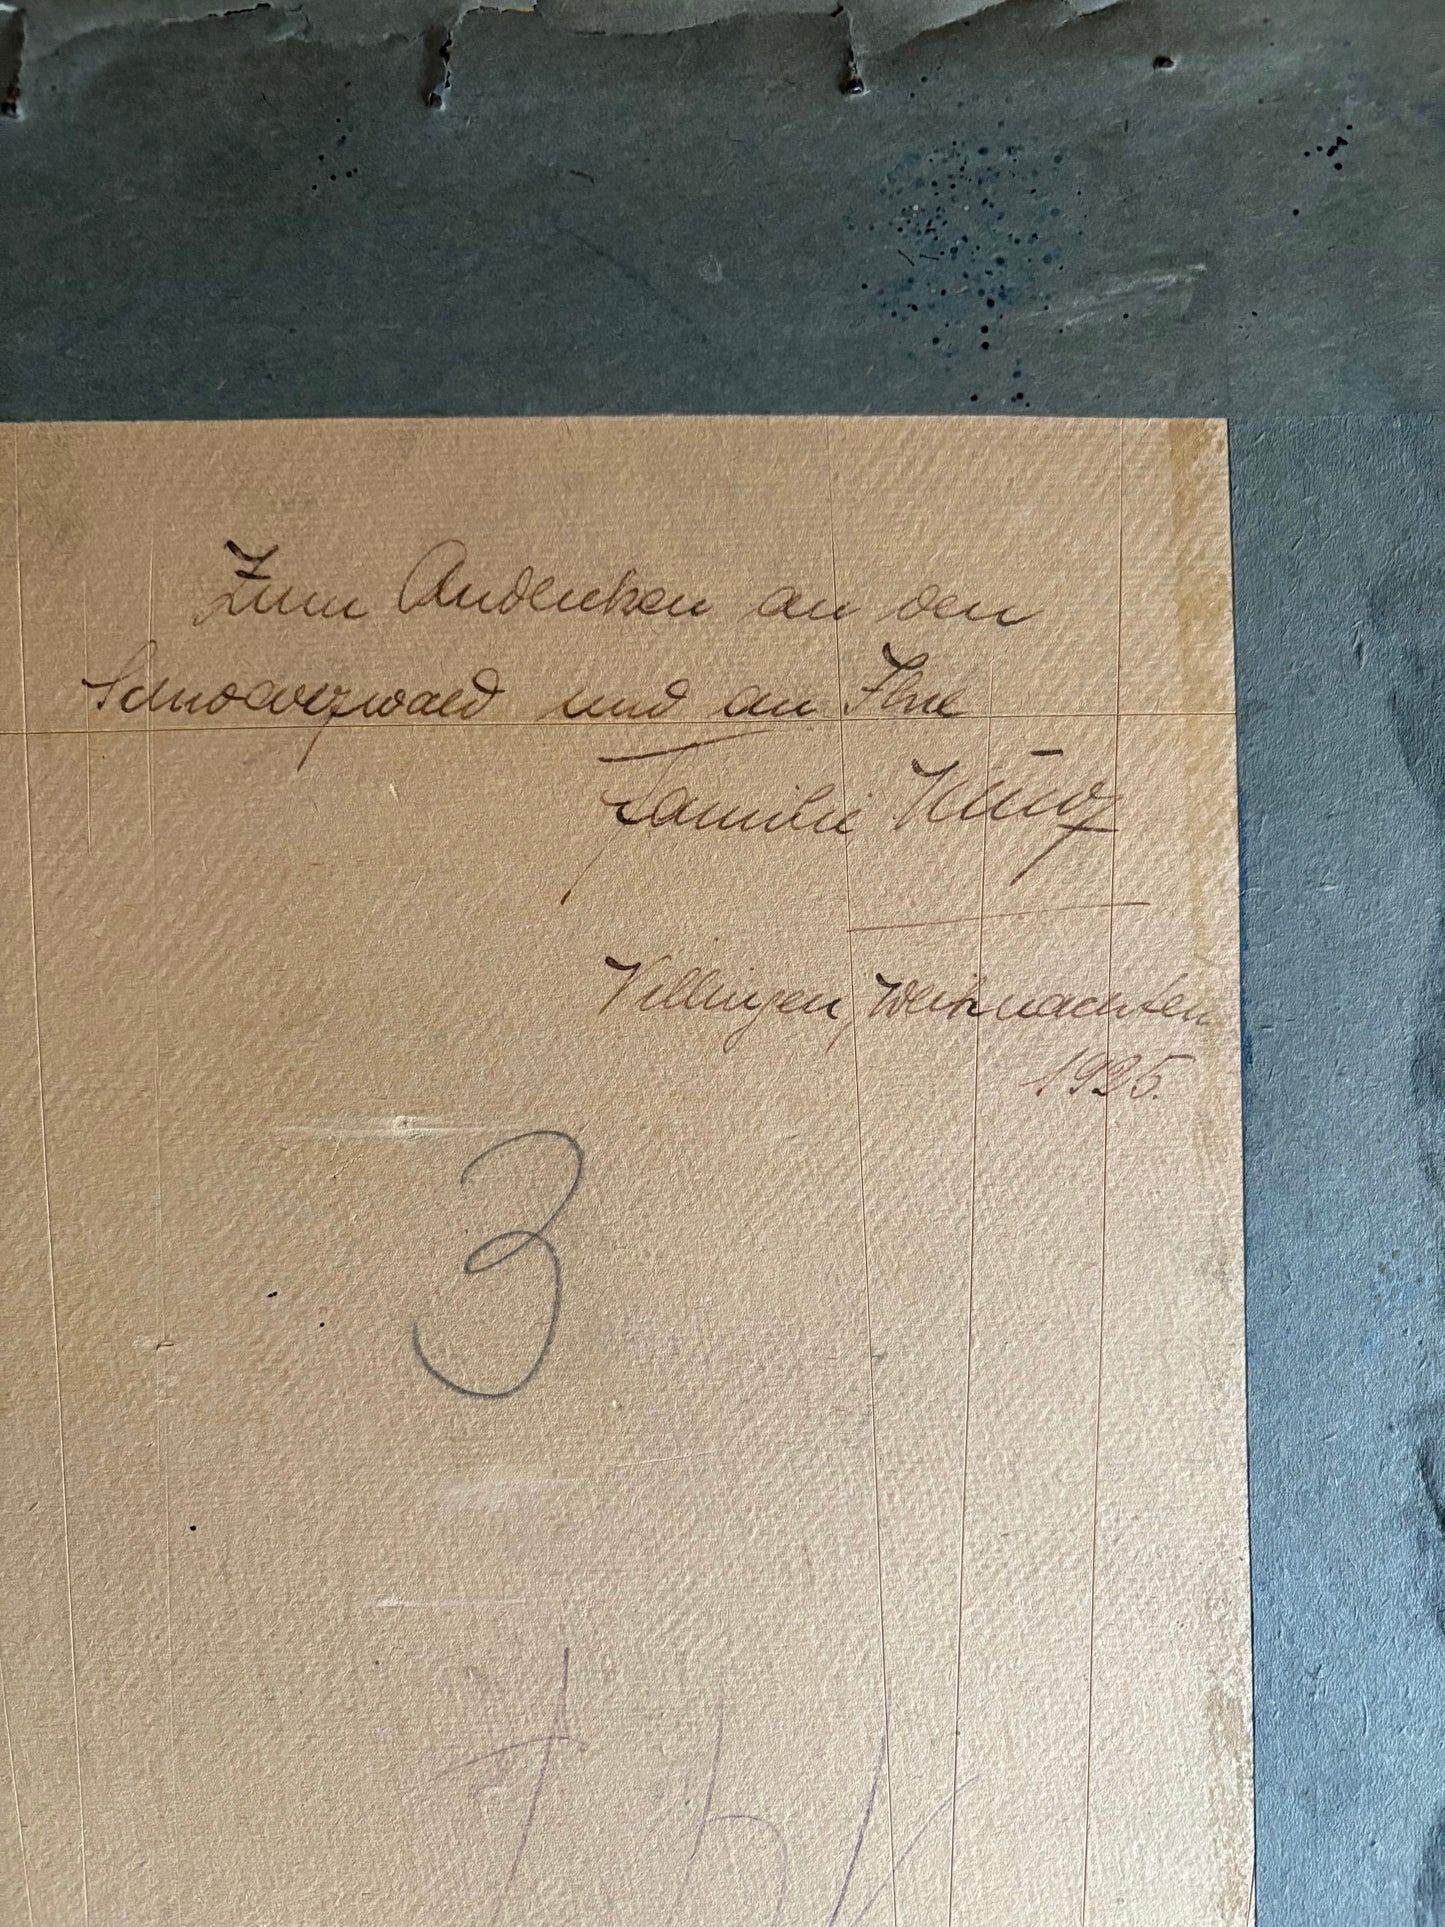 Zum Andenken an den
Schwarzwald und an Ihre
Familie
Villingen, Weihnachten
1925.
3